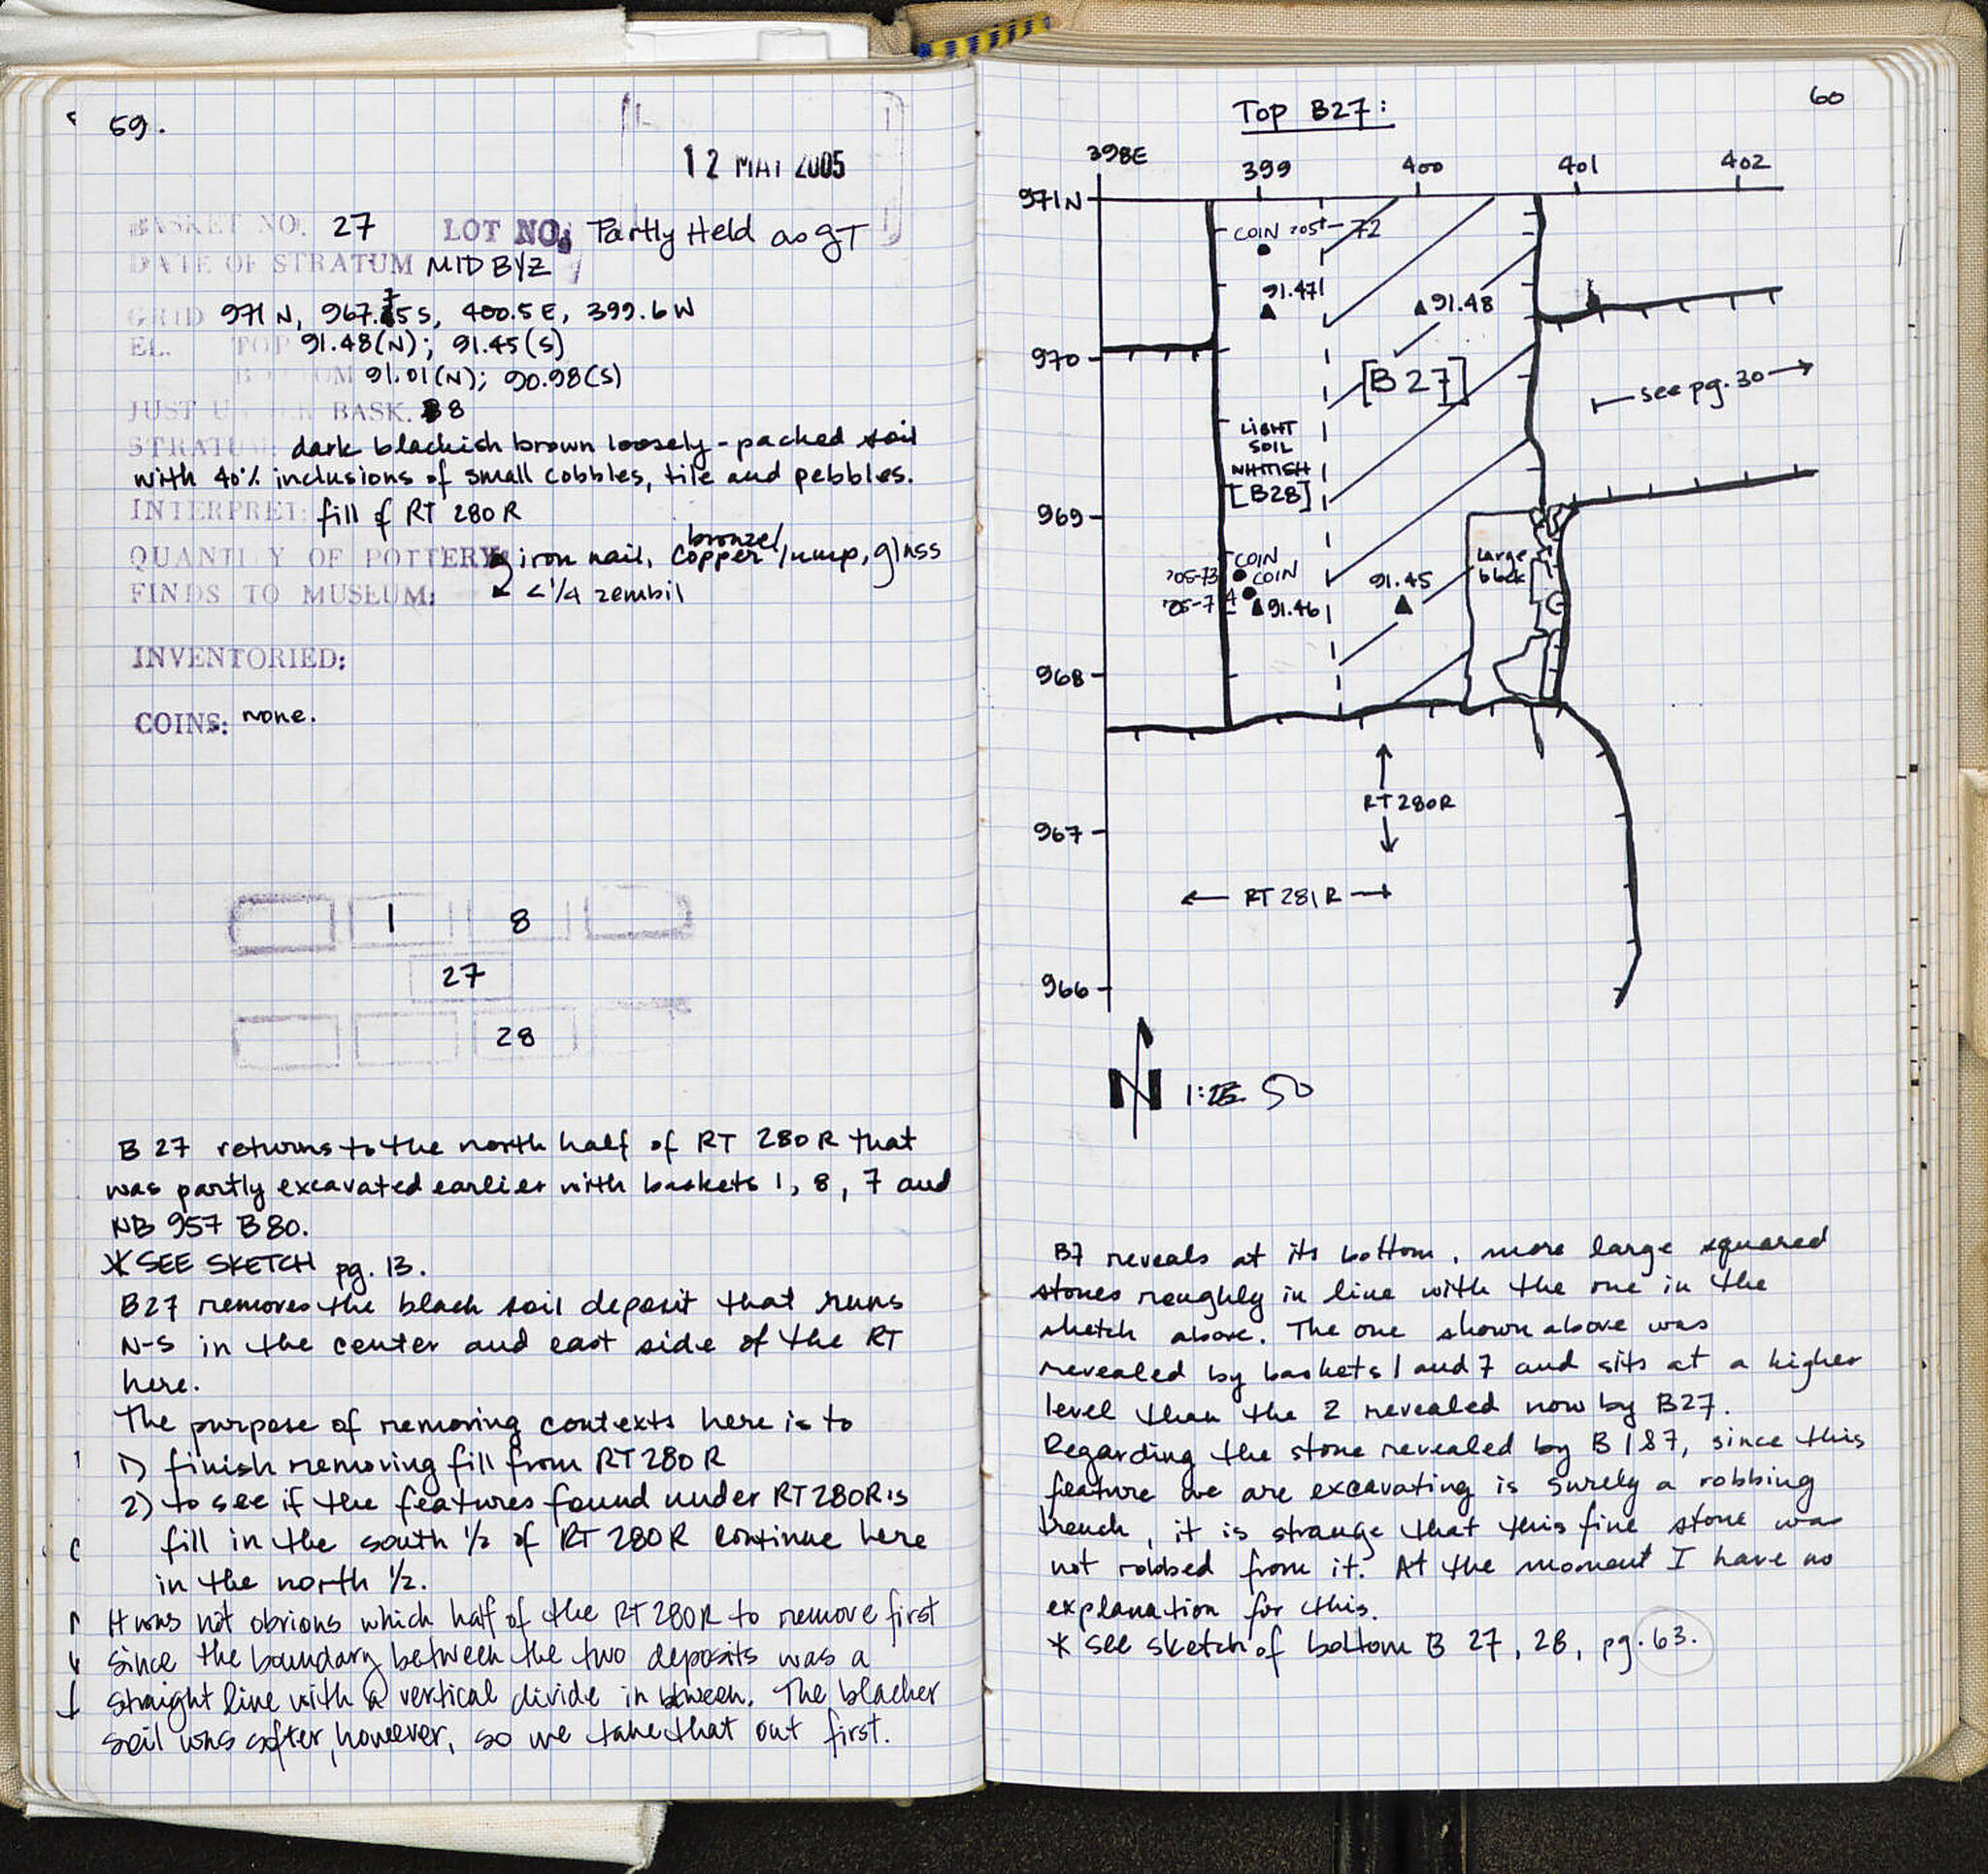 59.
12 MAY 2005
BASKET NO. 27 LOT NO. Partly Held as gT
DATE OF STRATUM MID BYZ
GRID 971 N, 967.75 S, 400.5 E, 399.6 W
EL. TOP 91.48(N); 91.45(S)
BOTTOM 91.01(N); 90.98(S)
JUST UNDER BASK. 8
STRATUM: dark blackish brown loosely-packed soil
with 40% inclusions of small cobbles, tile and pebbles.
INTERPRET: fill of RT 280R
bronze/
QUANTITY OF POTTERY: iron nail, copper lump, glass
FINDS TO MUSEUM: < 1/4 zembil
INVENTORIED:
COINS: none.
1 8
27
28
B 27 returns to the north half of RT 280R that
was partly excavated earlier with baskets 1, 8, 7 and
NB 957 B80.
* SEE SKETCH pg. 13.
B27 removes the black soil deposit that runs
N-S in the center and east side of the RT
here.
The purpose of removing contexts here is to
1) finish removing fill from RT 280R
2) to see if the features found under RT280R's
fill in the south 1/2 of RT 280R continue here
in the north 1/2.
It was not obvious which half of the RT 280R to remove first
since the boundary between the two deposits was a
straight line with a vertical divide in btween. The blacker
soil was softer, however, so we take that out first.
60
Top B27:
398E 399 400 401 402
971N
COIN '05-72
91.47
91.48
970
[B 27]
see pg. 30
LIGHT
SOIL
WHITISH
[B28]
969
COIN
large
block
'05-73
COIN
91.45
'05-74
91.46
968
RT 280R
967
RT 281 R
966
N 1:25 50
B7 reveals at its bottom, more large squared
stones roughly in line with the one in the
sketch above. The one shown above was
revealed by baskets 1 and 7 and sits at a higher
level than the 2 revealed now by B27.
Regarding the stone revealed by B 1&7, since this
feature we are excavating is surely a robbing
trench, it is strange that this fine stone was
not robbed from it. At the moment I have no
explanation for this.
* see sketch of bottom B 27, 28, pg. 63.